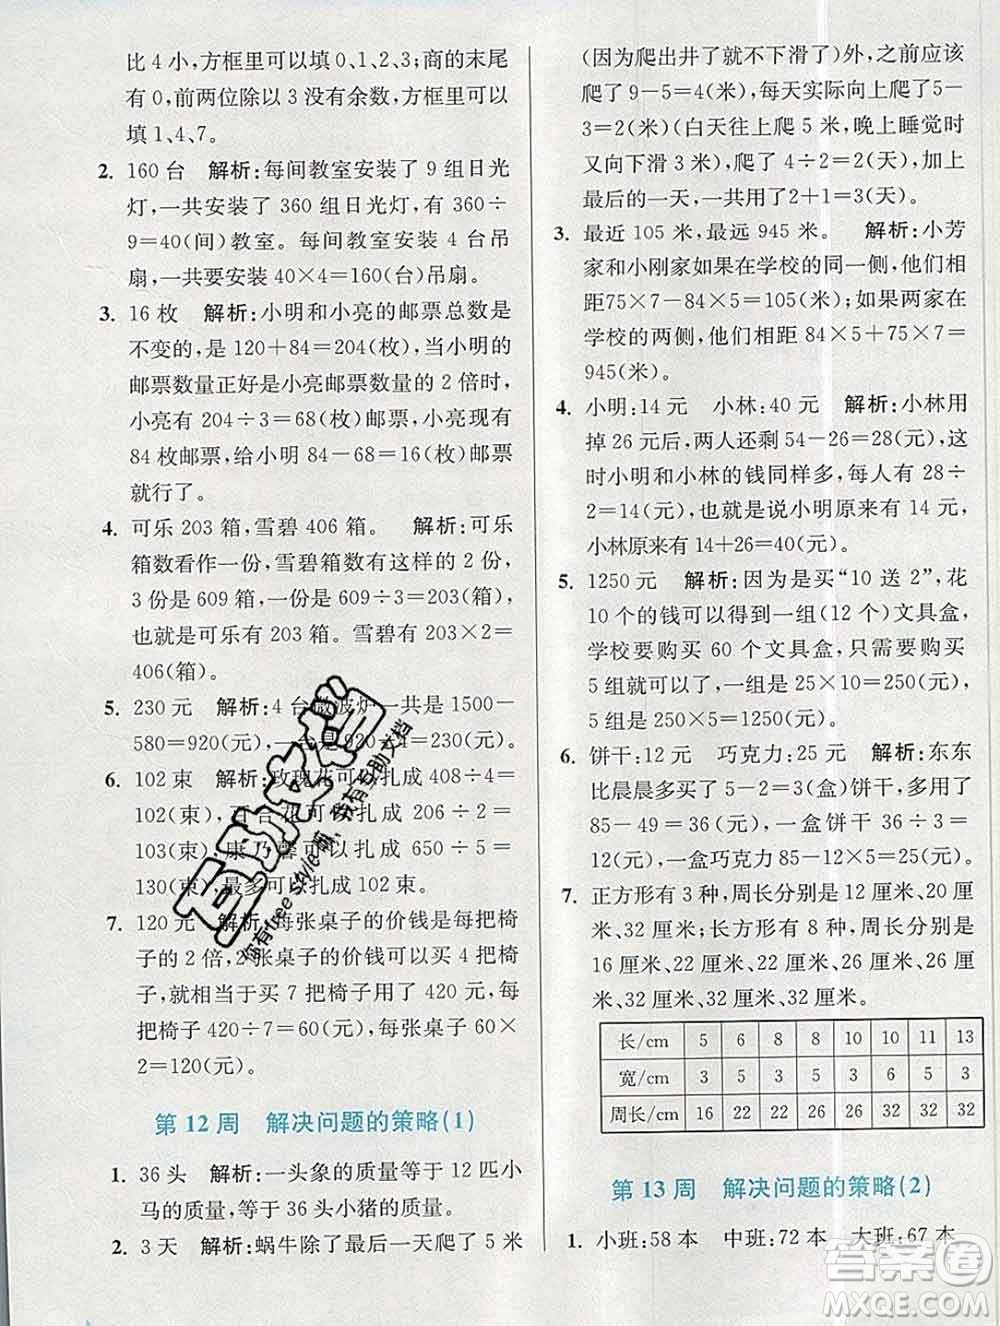 比 4 小,方框里可以填 0、1、2、3;商的末尾
有 0,前两位除以 3 没有余数,方框里可以
填 1、4、7。
2. 160 台 解析:每间教室安装了 9 组日光
灯,一共安装了 360 组日光灯,有 360÷
9=40(间)教室。每间教室安装 4 台吊
扇,一共要安装 40×4=160(台)吊扇。
3. 16 枚 解析:小明和小亮的邮票总数是
不变的,是 120+84=204(枚),当小明的
邮票数量正好是小亮邮票数量的 2 倍时,
小亮有 204÷3=68(枚)邮票,小亮现有
84 枚邮票,给小明 84-68=16(枚)邮票
就行了。
4. 可乐 203 箱,雪碧 406 箱。 解析:可乐
箱数看作一份,雪碧箱数有这样的 2 份,
3 份是 609 箱,一份是 609÷3=203(箱),
也就是可乐有 203 箱。雪碧有 203×2=
406(箱)。
5. 230 元 解析:4 台微波炉一共是 1500-
580=920(元),一台是 920÷4=230(元)。
6. 102 束 解析:玫瑰花可以扎成 408÷4=
102(束),百合花可以扎成 206÷2=
103(束),康乃馨可以扎成 650÷5=
130(束),最多可以扎成 102 束。
7. 120 元 解析:每张桌子的价钱是每把椅
子的 2 倍,2 张桌子的价钱相当于 4 把椅
子,就相当于买 7 把椅子用了 420 元,每
把椅子 420÷7=60(元),每张桌子 60×
2=120(元)。
第 12 周 解决问题的策略(1)
1. 36 头 解析:一头象的质量等于 12 匹小
马的质量,等于 36 头小猪的质量。
2. 3 天 解析:蜗牛除了最后一天爬了 5 米
(因为爬出井了就不下滑了)外,之前应该
爬了 9-5=4(米),每天实际向上爬了5-
3=2(米)(白天往上爬 5 米,晚上睡觉时
又向下滑 3 米),爬了 4÷2=2(天),加上
最后的一天,一共用了2+1=3(天)。
3. 最近 105 米,最远 945 米。 解析:小芳
家和小刚家如果在学校的同一侧,他们相
距75×7-84×5=105(米);如果两家在
学校的两侧,他们相距 84×5+75×7=
945(米)。
4. 小明:14 元 小林:40 元 解析:小林用
掉 26 元后,两人还剩 54-26=28(元),这
时小明和小林的钱同样多,每人有 28÷
2=14(元),说明小明原来有 14 元,
小林原来有 14+26=40(元)。
5. 1250 元 解析:因为是买“10 送 2”,花
10 个的钱可以得到一组(12 个)文具盒,
学校要购买 60 个文具盒,只需要购买
5 组就可以了,每组是 25×10=250(元),
5 组是 250×5=1250(元)。
6. 饼干:12 元 巧克力:25 元 解析:东东
比晨晨多买了 5-2=3(盒)饼干,多用了
85-49=36(元),一盒饼干 36÷3=
12(元),一盒巧克力 85-12×5=25(元)。
7. 正方形有 3 种,周长分别是 12 厘米、20 厘
米、32 厘米;长方形有 8 种,周长分别是
16 厘米、22 厘米、22 厘米、26 厘米、
32 厘米、32 厘米、32 厘米。
长/cm 5 6 8 8 10 11 13
宽/cm 3 5 3 5 8 5 3
周长/cm 16 22 22 26 32 32 32
第 13 周 解决问题的策略(2)
1. 小班:58 本 中班:72 本 大班:67 本
答案圈
MXQE.COM